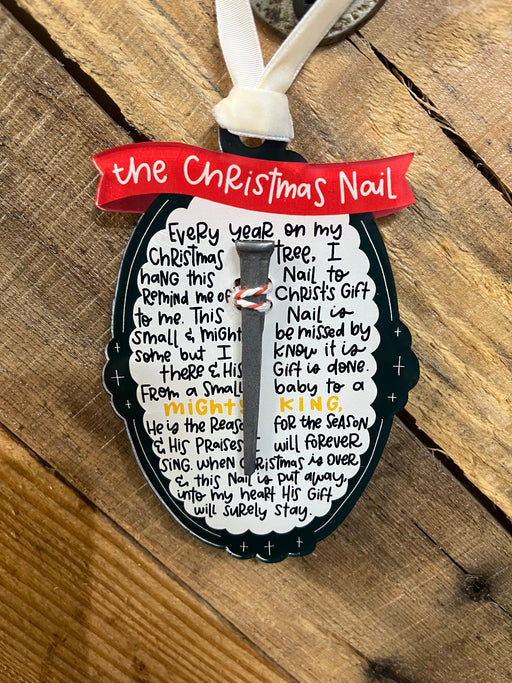 the Christmas Nail
Every year on my
Christmas tree, I
hang this Nail to
Remind me of Christ's Gift
to me. This Nail is
small & might be missed by
some but I know it is
there & His Gift is done.
From a small baby to a
might KING,
He is the Reaso for the Season
& His Praises I will forever
sing. When Christmas is over
& this Nail is put away,
into my heart His Gift
will surely stay.